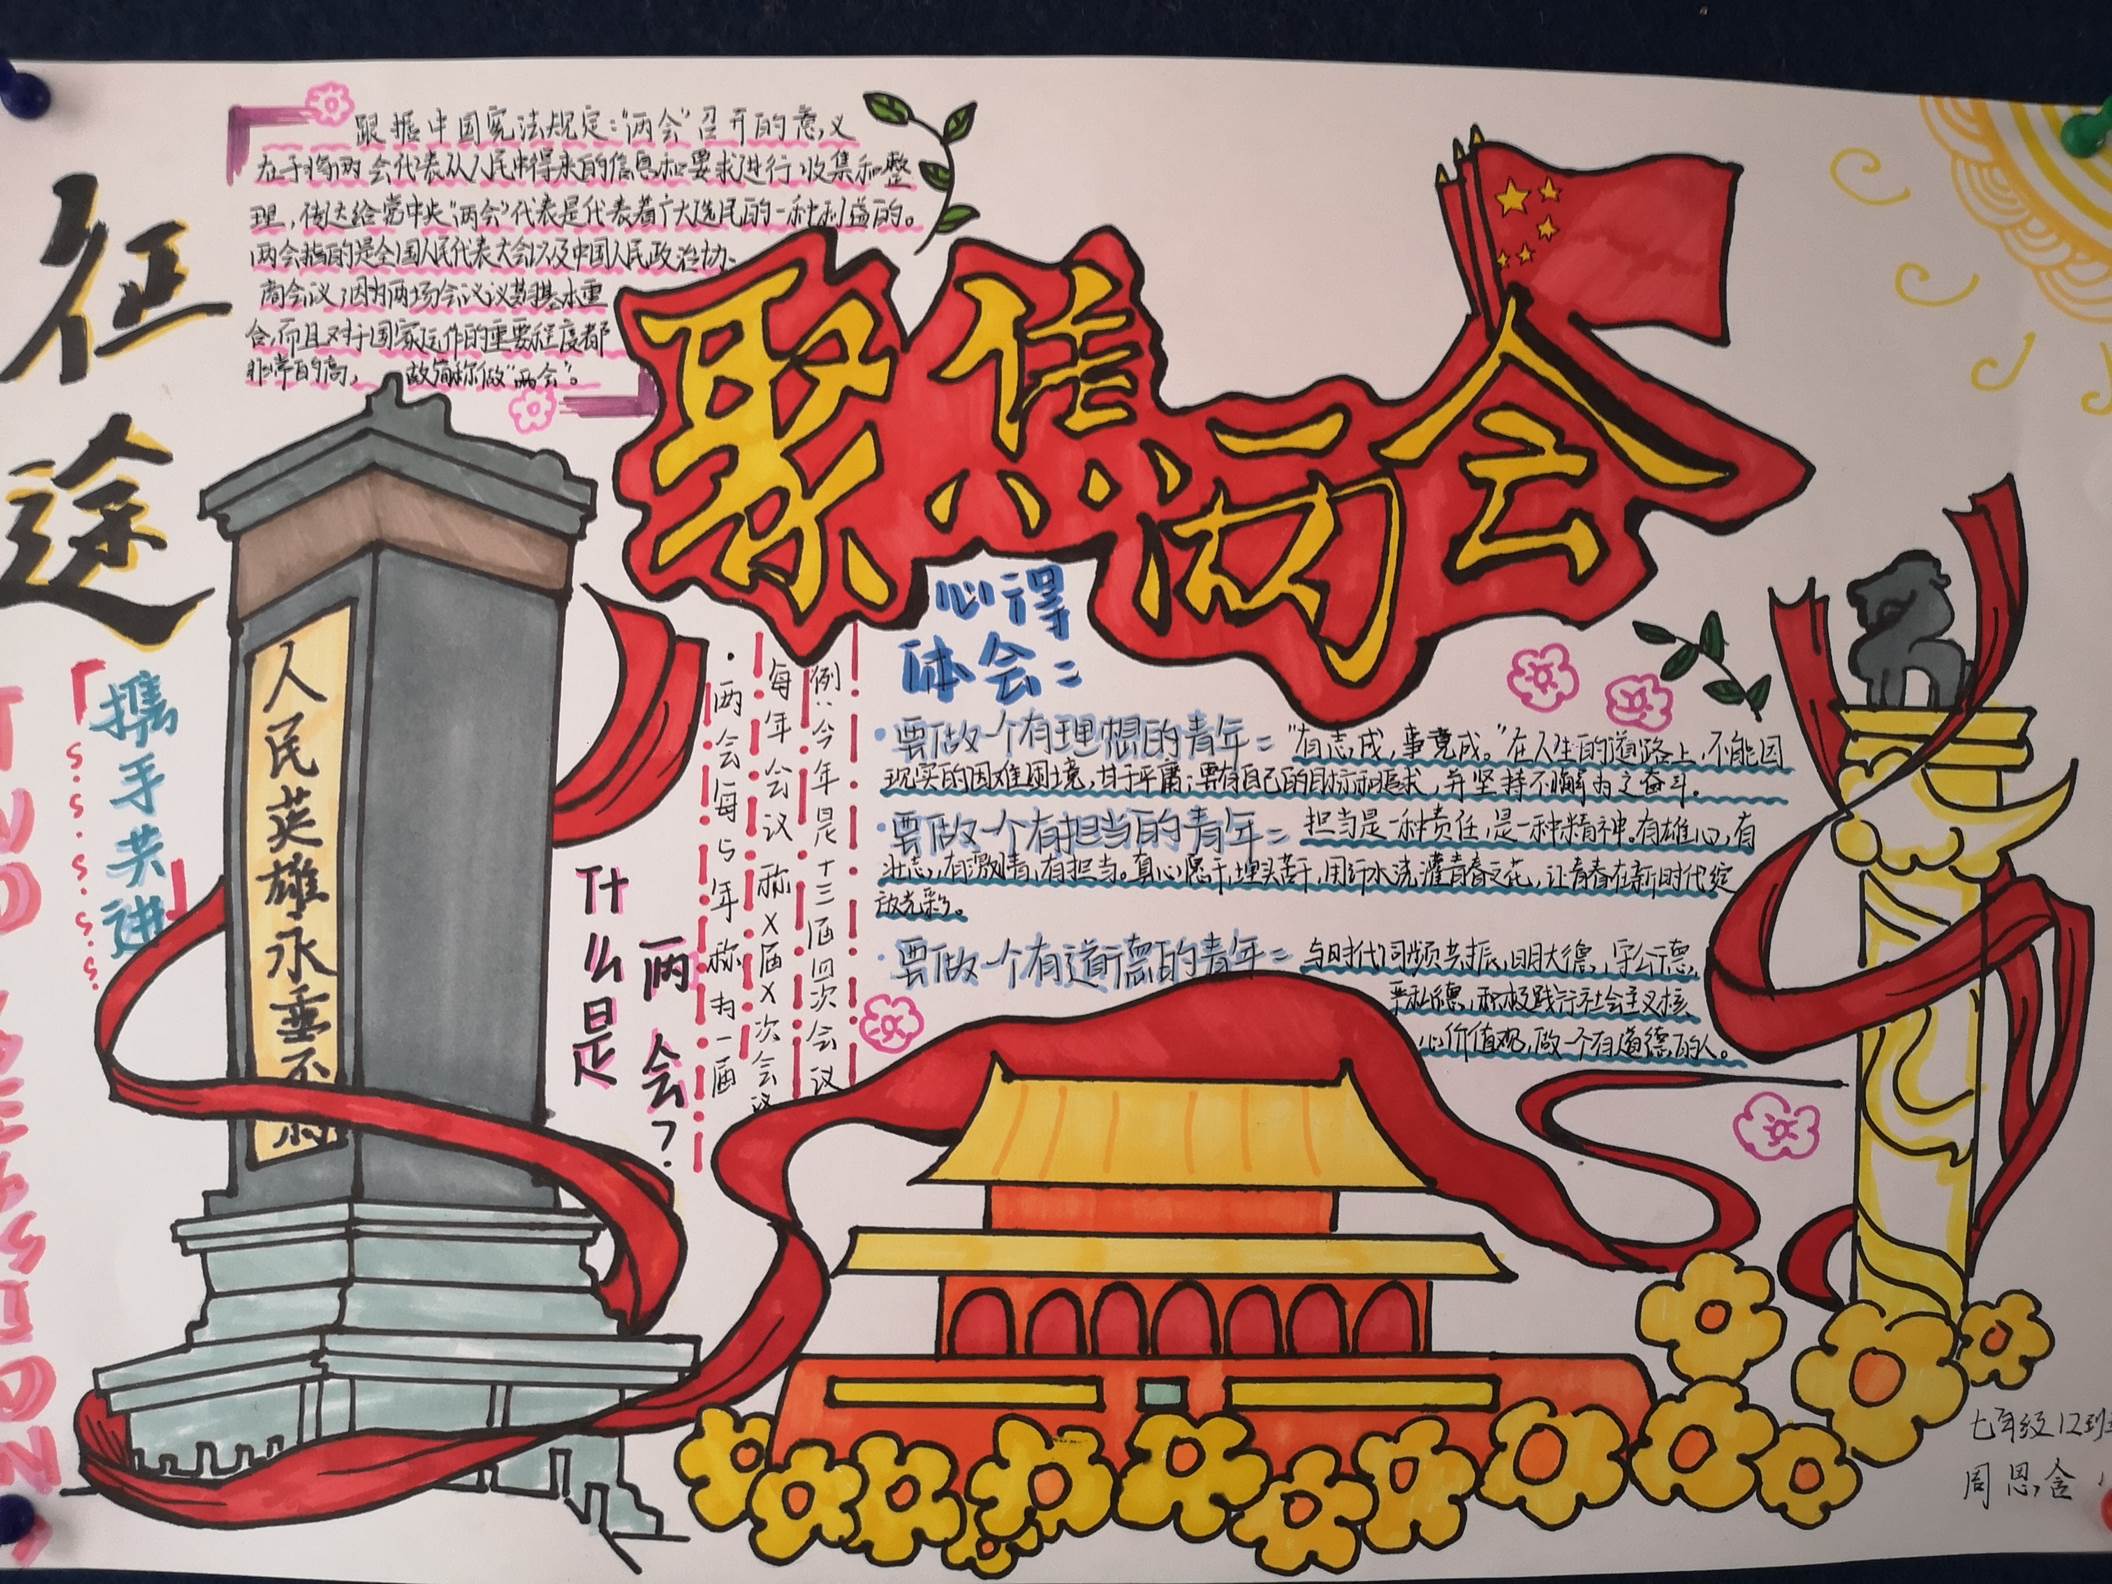 征途
携手共进
跟据中国宪法规定:“两会”召开的意义
在于将两会代表从人民中得来的信息和要求进行收集和整
理，传达给党中央“两会”代表是代表着广大选民的一种利益的。
两会指的是全国人民代表大会以及中国人民政治协
商会议;因为两场会议议基本重
合,而且对于国家运作的重要程度都
非常的高， 故简称做“两会”。
聚焦两会
人民英雄永垂不朽
什么是
两会?
·两会每5年称为一届
每年会议称X届X次会议
例:今年是十三届四次会议
心得
体会:
·要做一个有理想的青年: “有志成,事竟成。”在人生的道路上,不能因
现实的因难困境,甘于平庸;要有自己的目标和追求,并坚持不懈为之奋斗。
·要做一个有担当的青年: 担当是一种责任,是一种精神。有雄心,有
壮志,有激情,有担当。真心愿干,埋头苦干,用汗水浇灌青春之花,让青春在新时代绽
放光彩。
·要做一个有道德的青年: 与时代同频共振,明大德,守公德,
严私德,积极践行社会主义核
心价值观,做一个有道德的人。
七年级12班
周思含